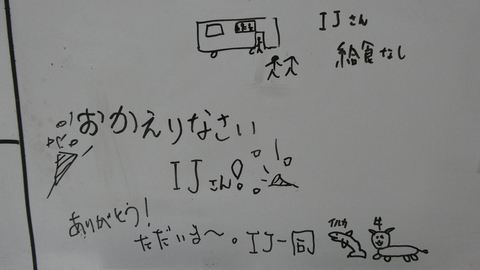 IJさん
給食なし
おかえりなさい
IJさん!
ありがとう!
ただいま〜。IJ一同
イルカ
牛